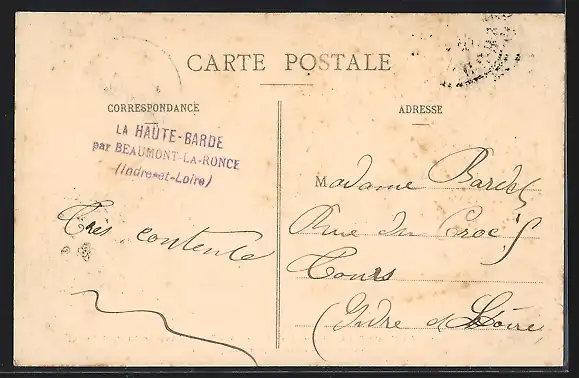 CARTE POSTALE
CORRESPONDANCE
LA HAÛTE-BARDE
par BEAUMONT-LA-RONCE
(Indre-et-Loire)
Très contente
ADRESSE
Madame
Rue du
Tours
(Indre et Loire